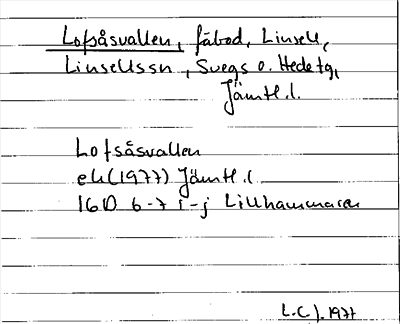 Lofsåsvallen, fäbod, Linsell,
Linsellssn, Svegs o. Hede tg,
Jämtl.l.
Lofsåsvallen
ek(1977) Jämtl.l
16D 6-7 i-j Lillhammaren
L.C J. 1977